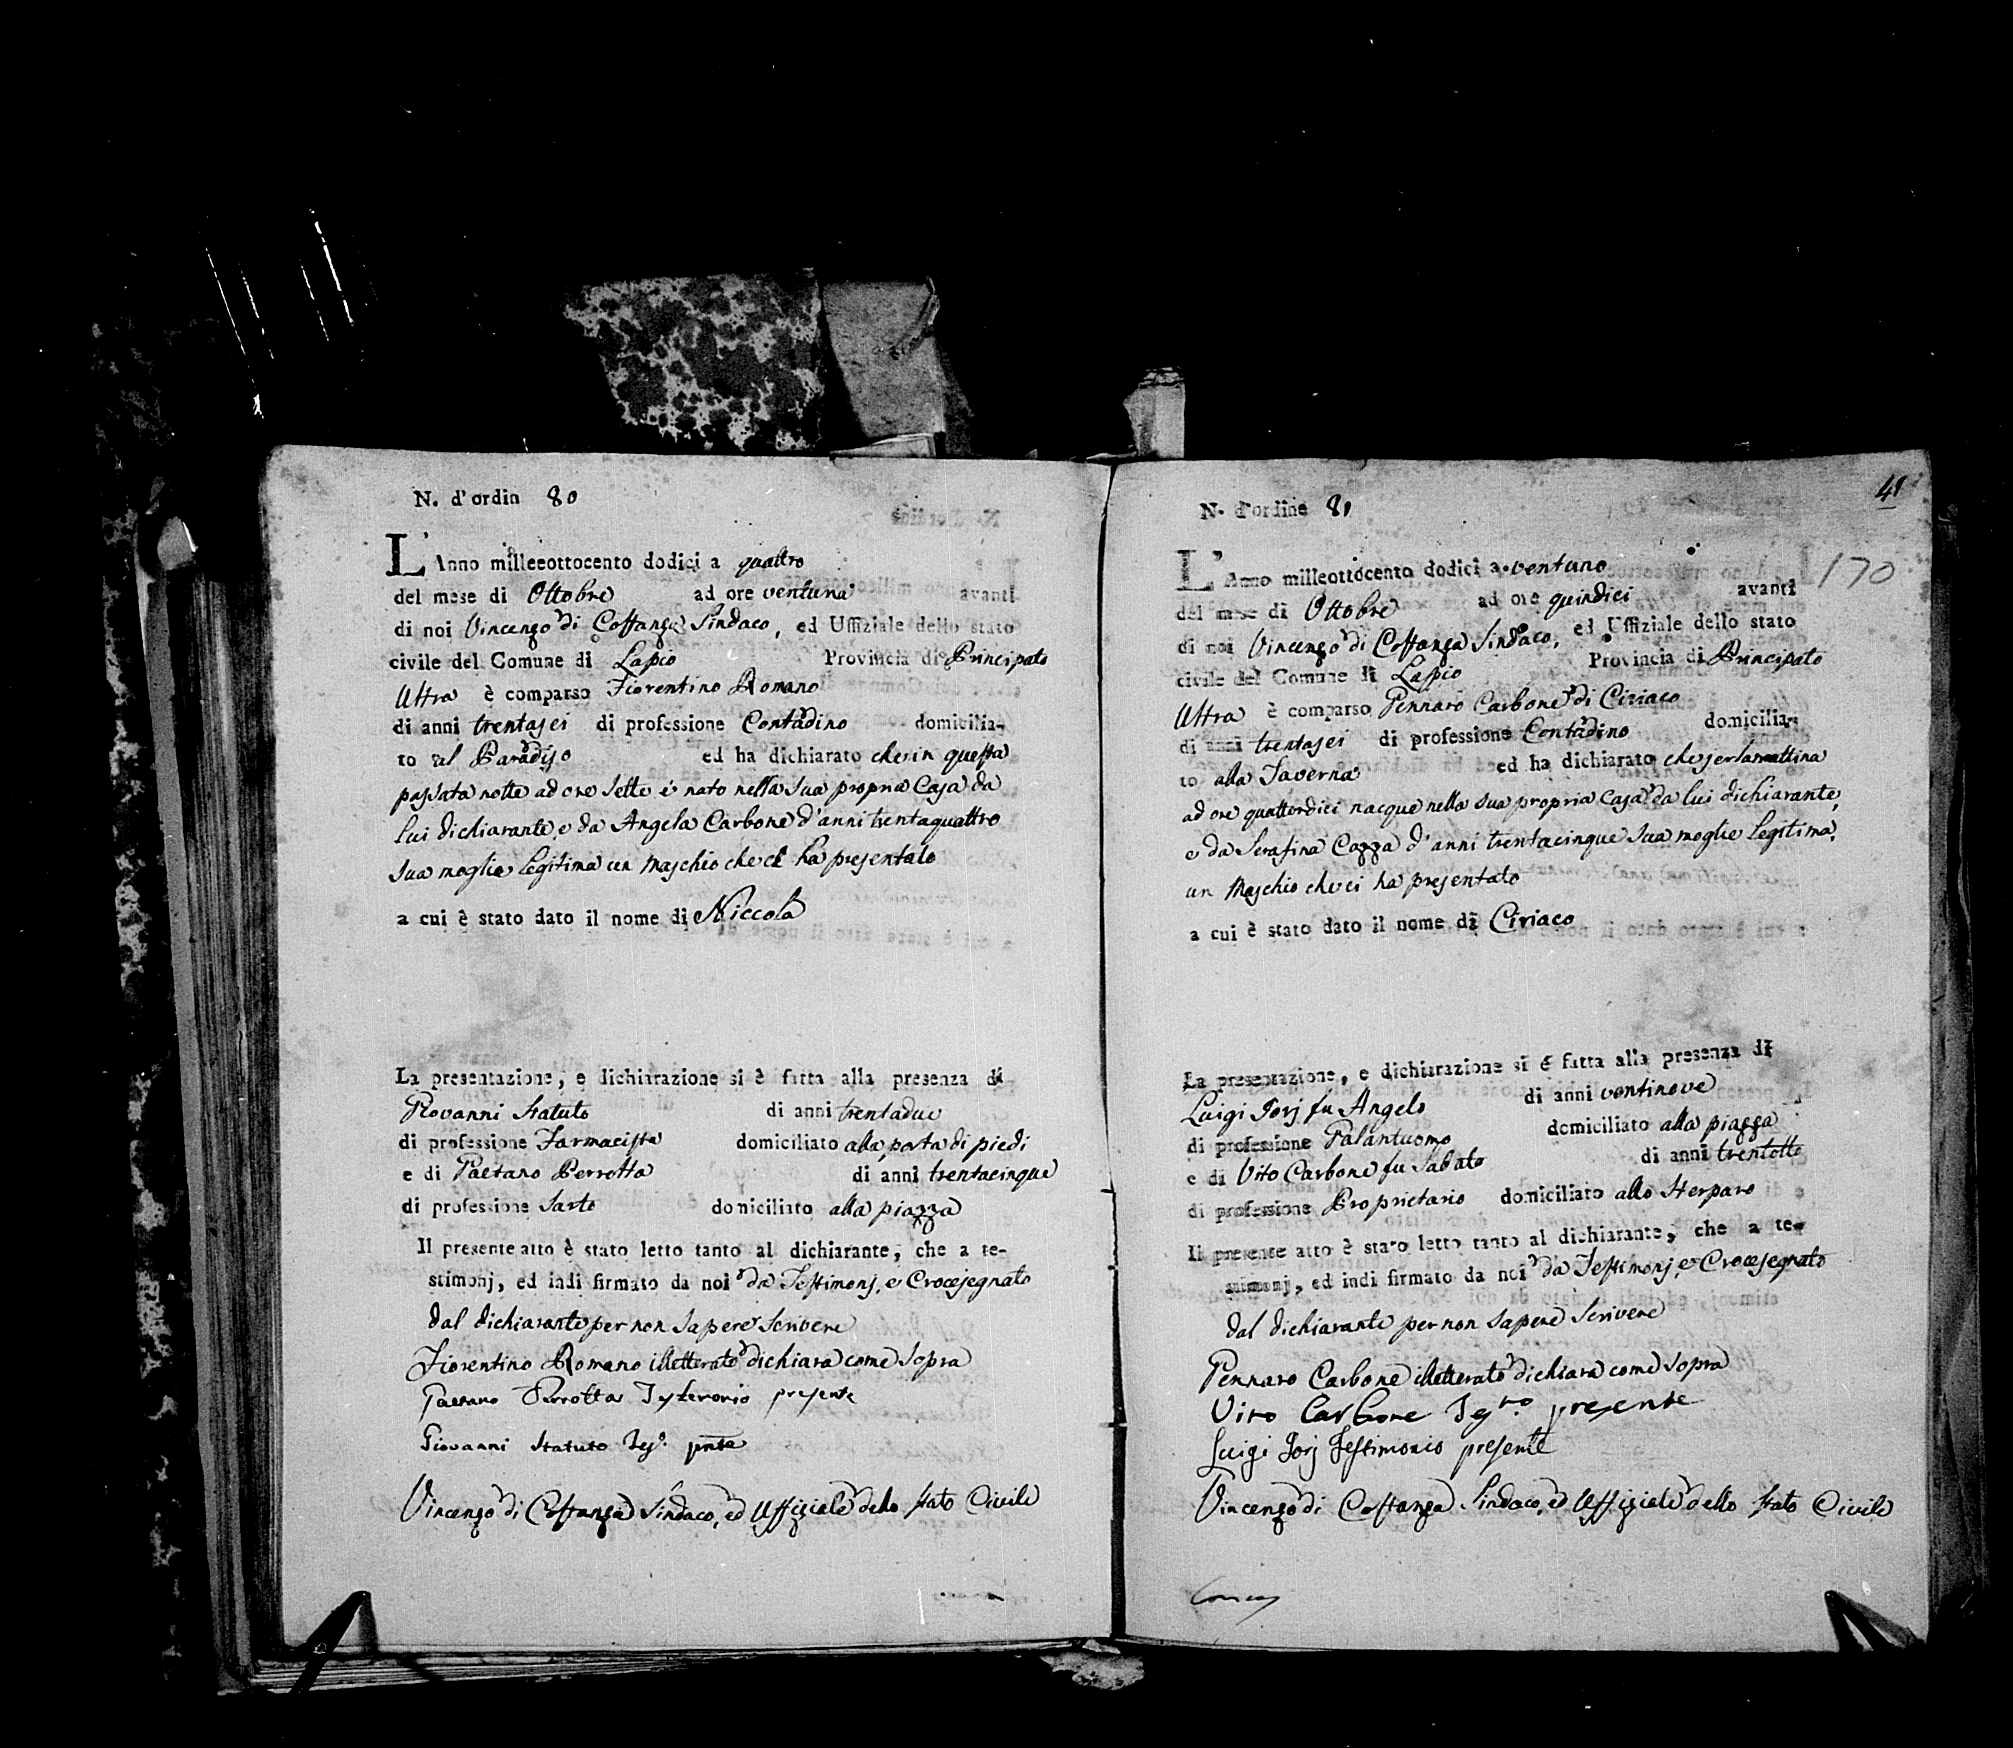 N. d'ordin 80
L'Anno milleeottocento dodici a quattro
del mese di Ottobre ad ore ventuna avanti
di noi Vincenzo di Costanza Sindaco, ed Uffiziale dello stato
civile del Comune di Lapio Provincia di Principato
Ultra è comparso Fiorentino Romano
di anni trentasei di professione Contadino domicilia-
to al Paradiso ed ha dichiarato che in questa
passata notte ad ore sette è nato nella sua propria Casa da
lui dichiarante, e da Angela Carbone d'anni trentaquattro
sua moglie legitima un Maschio che ci ha presentato
a cui è stato dato il nome di Niccola
La presentazione, e dichiarazione si è fatta alla presenza di
Giovanni Statuto di anni trentadue
di professione Farmacista domiciliato alla porta di piedi
e di Gaetano Perrotta di anni trentacinque
di professione Sarto domiciliato alla piazza
Il presente atto è stato letto tanto al dichiarante, che a te-
stimonj, ed indi firmato da noi da Testimonj, e Crocesegnato
dal dichiarante per non sapere scrivere
Fiorentino Romano illetterato dichiara come sopra
Gaetano Perrotta Testimonio presente
Giovanni Statuto Tes.o pnte
Vincenzo di Costanza Sindaco, ed Uffiziale dello stato Civile
41
N. d'ordine 81
170
L'Anno milleottocento dodici a ventuno
del mese di Ottobre ad ore quindici avanti
di noi Vincenzo di Costanza Sindaco, ed Uffiziale dello stato
civile del Comune di Lapio Provincia di Principato
Ultra è comparso Gennaro Carbone di Ciriaco
di anni trentasei di professione Contadino domicilia-
to alla Taverna ed ha dichiarato che jerlamattina
ad ore quattordici nacque nella sua propria Casa da lui dichiarante,
e da Serafina Cozza d'anni trentacinque sua moglie legitima,
un Maschio che ci ha presentato
a cui è stato dato il nome di Ciriaco
La presentazione, e dichiarazione si è fatta alla presenza di
Luigi Jorj fu Angelo di anni ventinove
di professione Galantuomo domiciliato alla piazza
e di Vito Carbone fu Sabato di anni trentotto
di professione Proprietario domiciliato allo Sterparo
Il presente atto è stato letto tanto al dichiarante, che a te-
stimonj, ed indi firmato da noi da Testimonj, e Crocesegnato
dal dichiarante per non sapere scrivere
Gennaro Carbone illetterato dichiara come sopra
Vito Carbone Tes.to presente
Luigi Jorj Testimonio presente
Vincenzo di Costanza Sindaco, ed Uffiziale dello stato Civile